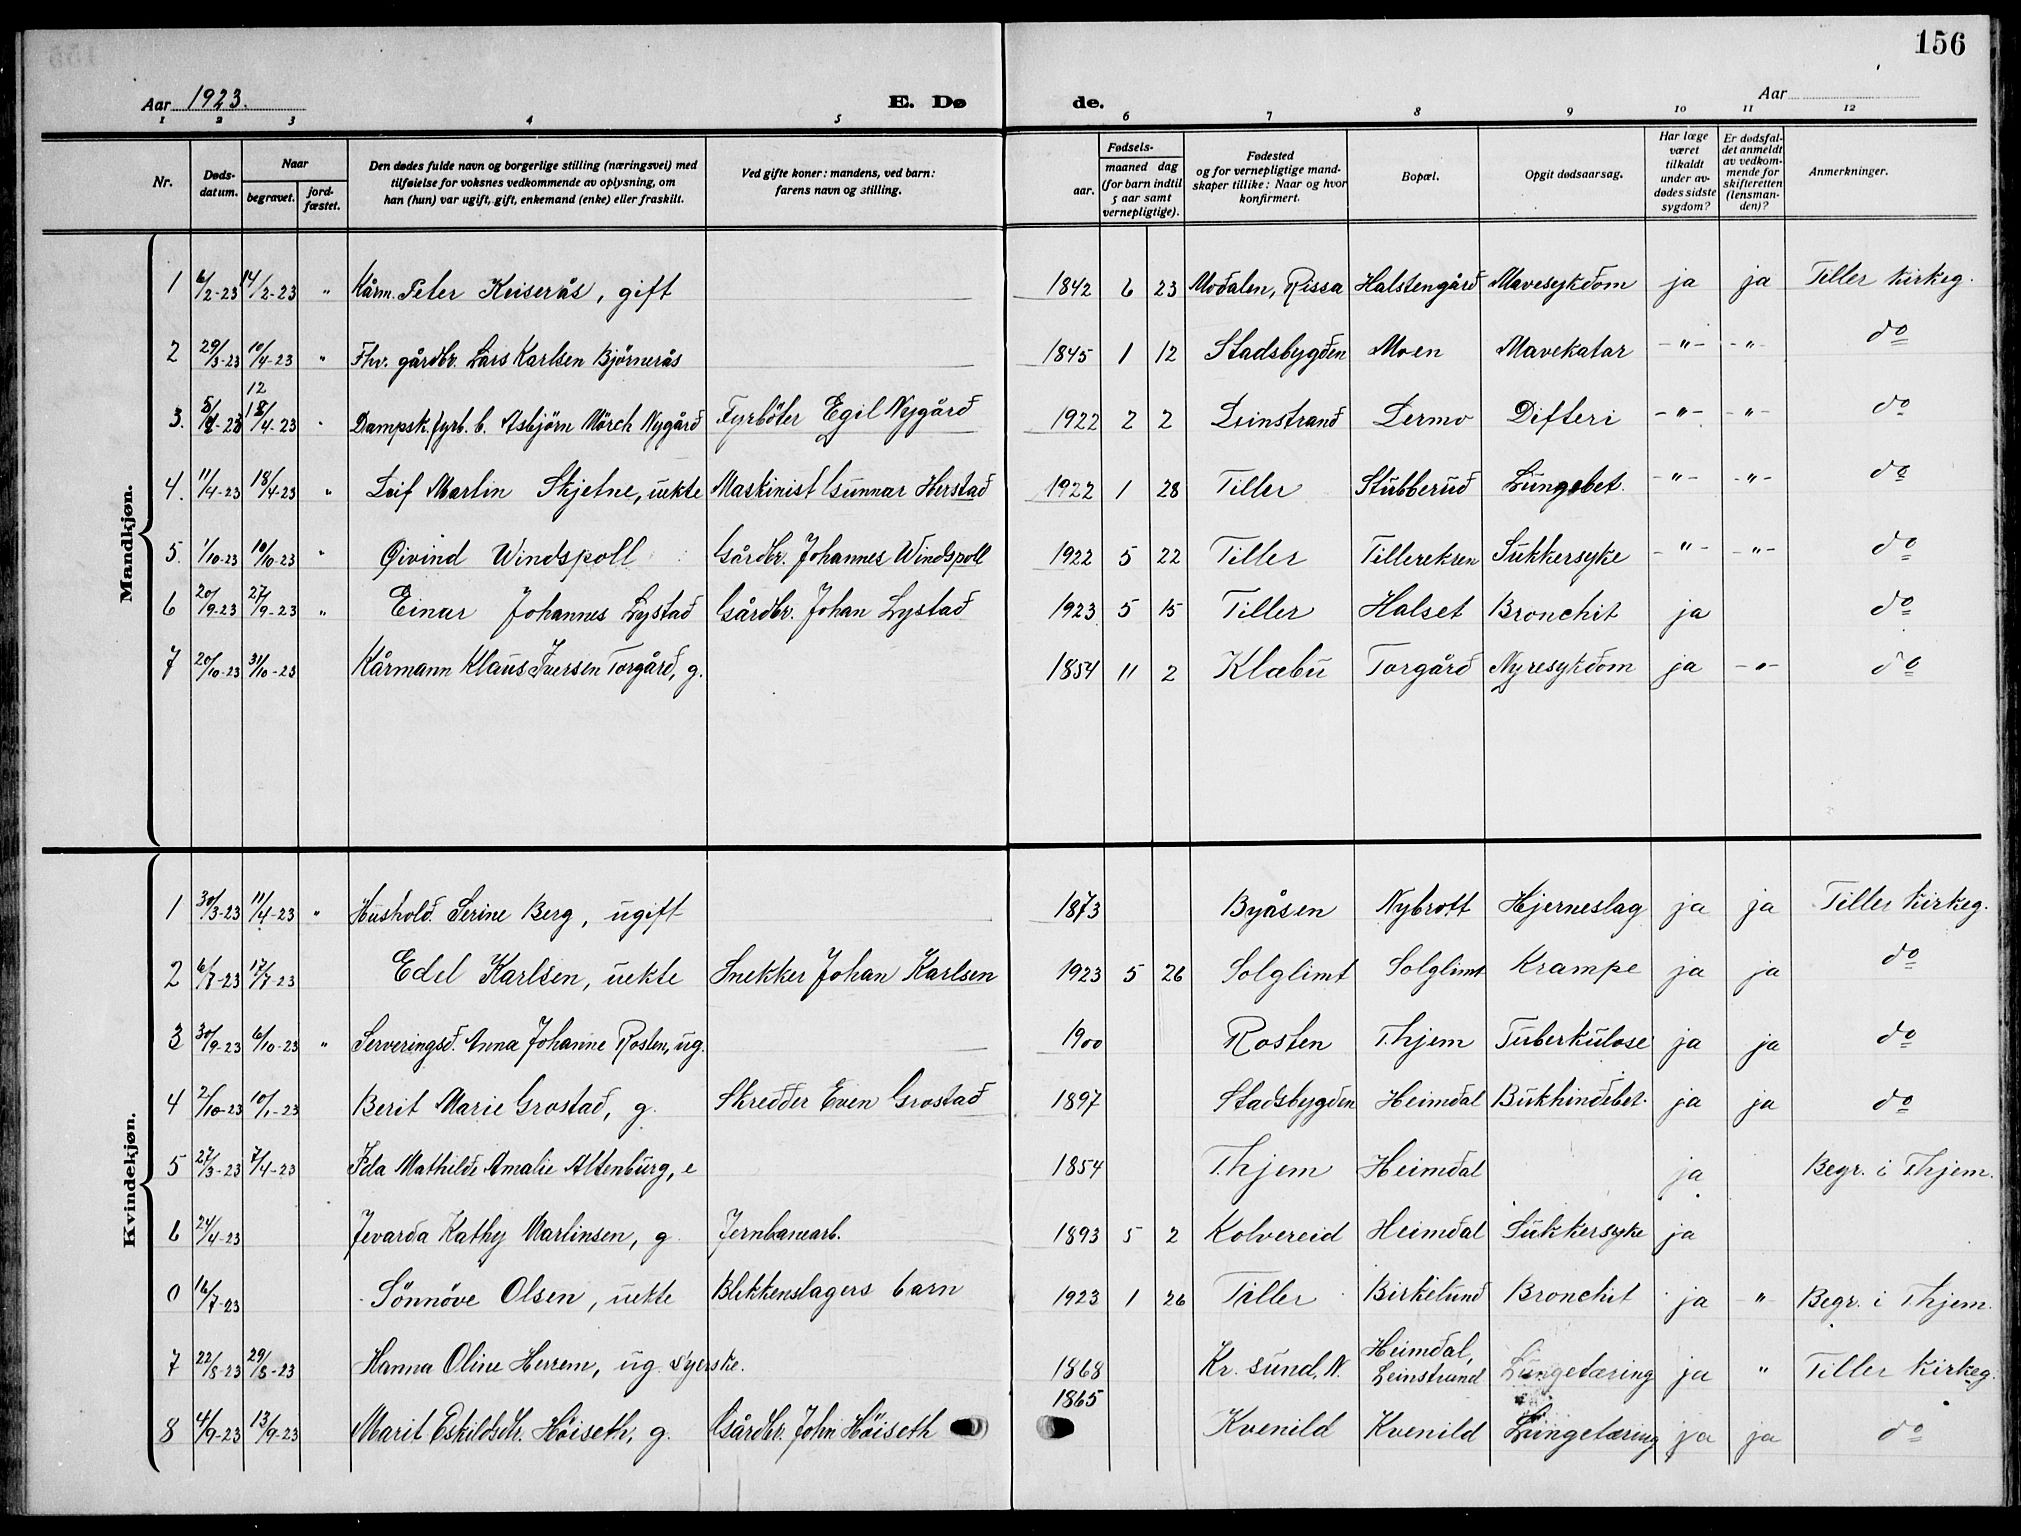 156
Aar 1923.
E. Dø de.
Aar
1 2 3 4 5 6 7 8 9 10 11 12
Nr.
Døds-
datum.
Naar
begravet.
jord-
fæstet.
Den dødes fulde navn og borgerlige stilling (næringsvei) med
tilføielse for voksnes vedkommende av oplysning, om
han (hun) var ugift, gift, enkemand (enke) eller fraskilt.
Ved gifte koner: mandens, ved barn:
farens navn og stilling.
Fødsels-
aar.
maaned dag
(for barn indtil
5 aar samt
vernepligtige).
Fødested
og for vernepligtige mand-
skaper tillike: Naar og hvor
konfirmert.
Bopæl.
Opgit dødsaarsag.
Har læge
været
tilkaldt
under av-
dødes sidste
sygdom?
Er dødsfal-
det anmeldt
av vedkom-
mende for
skifteretten
(lensman-
den)?
Anmerkninger.
Mandkjøn.
1 6/2-23 14/2-23 " Kårm. Peter Keiserås, gift 1842 6 23 Modalen, Rissa Halstengård Mavesykdom ja ja Tiller kirkeg.
2 29/3-23 10/4-23 " Fhv. gårdbr. Lars Karlsen Björnerås 1845 1 12 Stadsbygden Moen Mavekatar -"- -"- do
12
3. 5/4-23 12/4-23 " Dampsk. fyrb. b. Asbjörn Mörch Nygård Fyrböter Egil Nygård 1922 2 2 Leinstrand Lermo Difteri -"- -"- do
4. 11/4-23 18/4-23 " Leif Martin Skjetne, uekte Maskinist Gunnar Herstad 1922 1 28 Tiller Stubberud Lungebet. -"- -"- do
5 1/10-23 10/10-23 " Øivind Windspoll Gårdbr. Johannes Windspoll 1922 5 22 Tiller Tillereksen Sukkersyke -"- -"- do
6 20/9-23 27/9-23 " Einar Johannes Lystad Gårdbr. Johan Lystad 1923 5 15 Tiller Halset Bronchit ja do
7 20/10-23 31/10-23 Kårmann Klaus Iversen Torgård, g. 1854 11 2 Klæbu Torgård Nyresykdom ja -"- do
Kvindekjøn.
1 30/3-23 11/4-23 " Hushold. Serine Berg, ugift 1873 Byåsen Nybrott Hjerneslag ja ja Tiller kirkeg.
2 6/7-23 17/7-23 Edel Karlsen, uekte Snekker Johan Karlsen 1923 5 26 Solglimt Solglimt Krampe ja ja do
3 30/9-23 6/10-23 " Serveringsd. Anna Johanne Rosten, ug. 1900 Rosten Thjem Tuberkulose ja ja do
4 2/10-23 10/1-23 Berit Marie Grostad, g. Skredder Even Grostad 1897 Stadsbygden Heimdal Bukhindebet. ja ja do
5 27/3-23 7/4-23 Ida Mathilde Amalie Altenburg, e 1854 Thjem Heimdal ja Begr. i Thjem.
6 24/4-23 Jevarda Kathy Martinsen, g. Jernbanearb. 1893 5 2 Kolvereid Heimdal Sukkersyke ja
0 16/7-23 Sönnöve Olsen, uekte Blikkenslagers barn 1923 1 26 Tiller Birkelund Bronchit ja " Begr. i Thjem.
7 22/8-23 29/8-23 Hanna Oline Herrem, ug. syerske. 1868 Kr. sund, N. Heimdal, Leinstrand Lungetæring ja " Tiller kirkeg.
8 4/9-23 13/9-23 Marit Eskildsdtr. Höiseth, g. Gårdbr. John Höiseth 1865 Kvenild Kvenild Lungetæring ja ja do